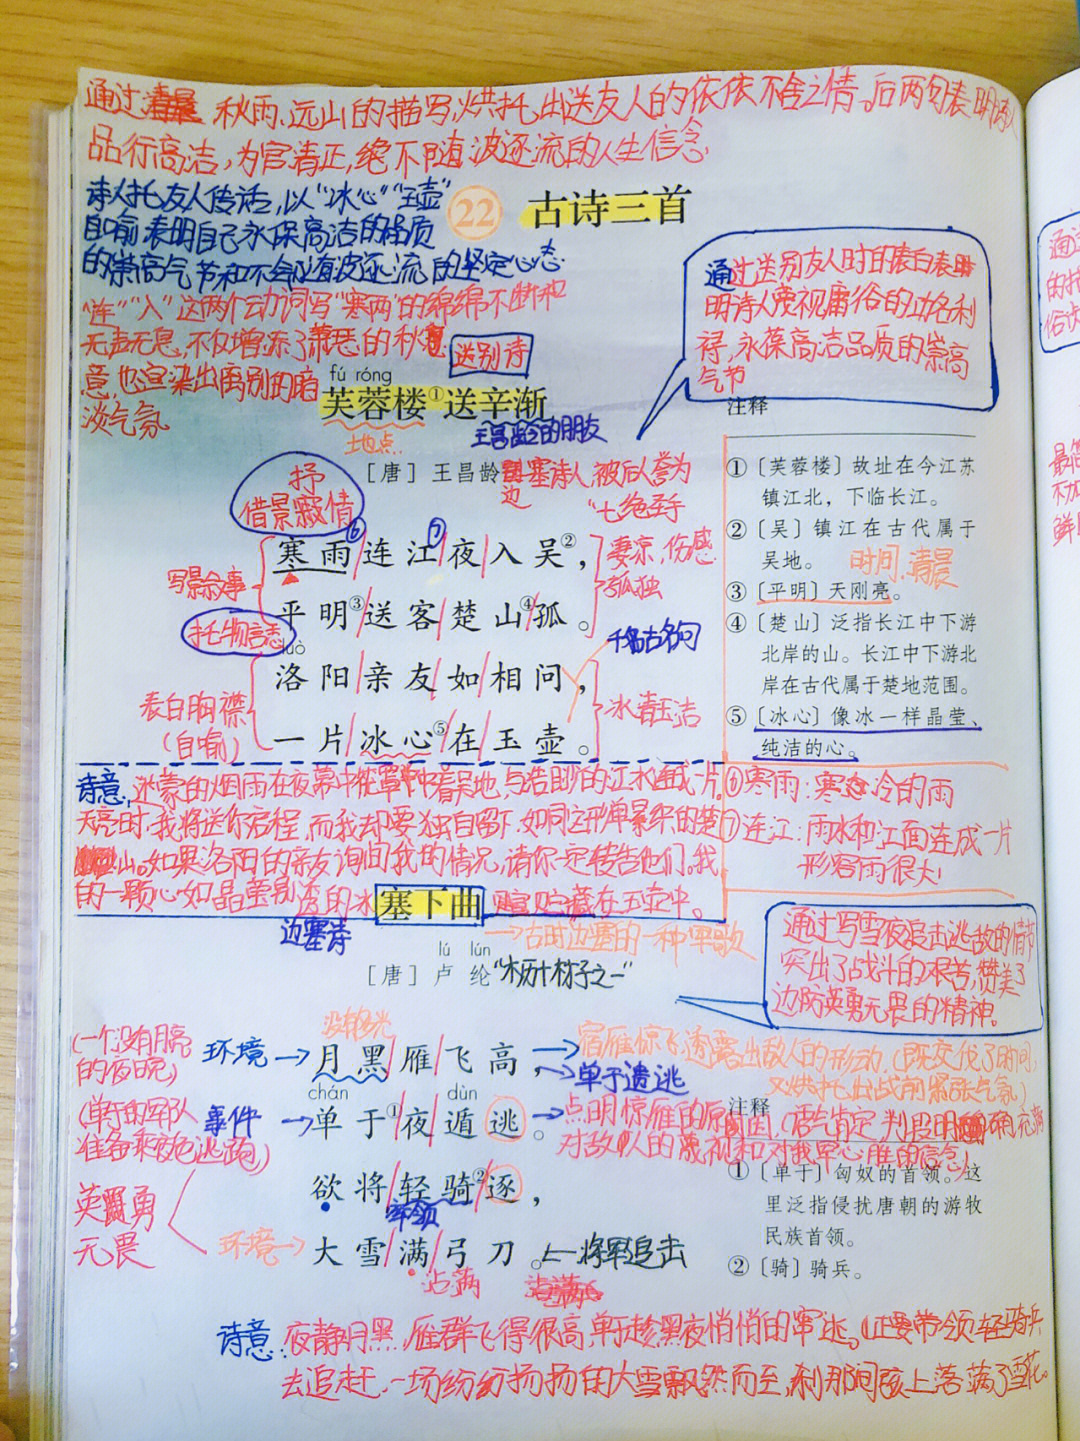 通过清晨 秋雨、远山的描写,烘托出送友人的依依不舍之情。后两句表明诗人
品行高洁,为官清正,绝不随波逐流的人生信念
诗人托友人传话,以"冰心""玉壶"
自喻表明自己永保高洁的品质
的崇高气节和不会随波逐流的坚定心态
22 古诗三首
"连""入"这两个动词写"寒雨"的绵绵不断和
无声无息,不仅增添了萧瑟的秋
意,也渲染出离别的暗
淡气氛
送别诗
通过送别友人时的表白表
明诗人蔑视庸俗的功名利
禄,永葆高洁品质的崇高
气节
fú róng
芙蓉楼①送辛渐
地点
王昌龄的朋友
[唐] 王昌龄
边塞诗人,被后人誉为
"七绝圣手
抒
借景寂情
寒雨连江夜入吴②,
平明③送客楚山④孤。
luò
洛阳亲友如相问,
一片冰心⑤在玉壶。
⑥
⑦
写景叙事
托物言志
表白胸襟
(自喻)
凄凉,伤感
孤独
千古名句
冰清玉洁
注释
①〔芙蓉楼〕故址在今江苏
镇江北,下临长江。
②〔吴〕镇江在古代属于
吴地。
时间,清晨
③〔平明〕天刚亮。
④〔楚山〕泛指长江中下游
北岸的山。长江中下游北
岸在古代属于楚地范围。
⑤〔冰心〕像冰一样晶莹、
纯洁的心。
⑥寒雨:寒冷的雨
⑦连江:雨水和江面连成一片
形容雨很大!
诗意:迷蒙的烟雨在夜幕中笼罩着吴地,与浩渺的江水连成一片。
天亮时,我将送你启程,而我却要独自留下,如同这形单影只的楚
山。如果洛阳的亲友询问我的情况,请你一定转告他们,我
的一颗心如晶莹剔透的冰 贮藏在玉壶中。
塞下曲
边塞诗
→古时边塞的一种军歌
lú lún
[唐] 卢纶
"大历十才子之一"
通过写雪夜追击逃敌的情节
突出了战斗的艰苦,赞美了
边防英勇无畏的精神。
没有月光
(一个没有月亮
的夜晚)
环境→
月黑雁飞高,
→宿雁惊飞,透露出敌人的形动。(既交代了时间,
又烘托出战前紧张气氛)
→单于遗逃
chán dùn
(单于的军队
准备乘夜色逃跑)
事件→
单于①夜遁逃。
→点明惊雁的原因,(语气肯定,判断明确,充满
对敌人的蔑视和对我军必胜的信念)
欲将轻骑②逐,
率领
英勇
无畏
环境→
大雪满弓刀。
←将军追击
沾满
注释
①〔单于〕匈奴的首领。这
里泛指侵扰唐朝的游牧
民族首领。
②〔骑〕骑兵。
诗意:夜静月黑,雁群飞得很高,单于趁黑夜悄悄的窜逃。正要带领轻骑兵
去追赶,一场纷纷扬扬的大雪飘然而至,刹那间 上落满了雪花。